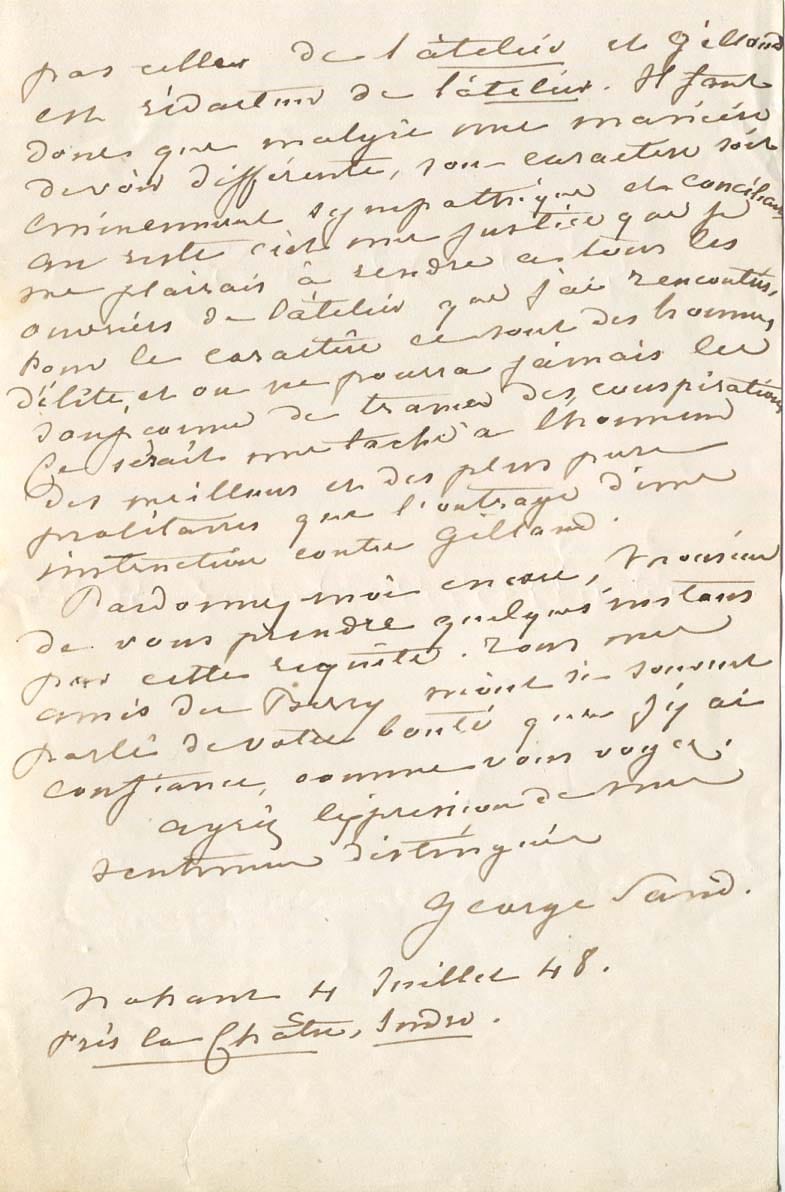 pas celles de l'àtelier et Gilland
est rédacteur de l'àtelier. Il faut
donc que malgré une manière
de voir différente, son caractère soit
éminemment sympathique et conciliant
au reste c'est une justice que je
me plairais à rendre a tous les
ouvriers de l'àtelier que j'ai rencontrés,
Pour le caractère ce sont des hommes
d'élite, et on ne pourra jamais les
soupçonner de tramer des conspirations
Ce serait une tache à l'honneur
des meilleurs et des plus purs
prolétaires que l'outrage d'une
instruction contre Gilland.
Pardonnez moi encore, Monsieur
de vous prendre quelques instans
par cette requête. Tous mes
amis du Berry m'ont si souvent
parlé de votre bonté que j'y ai
confiance, comme vous voyez.
agréez l'expression de mes
sentimens distingués
George Sand.
Nohant 4 Juillet 48.
près la Châtre, Indre.